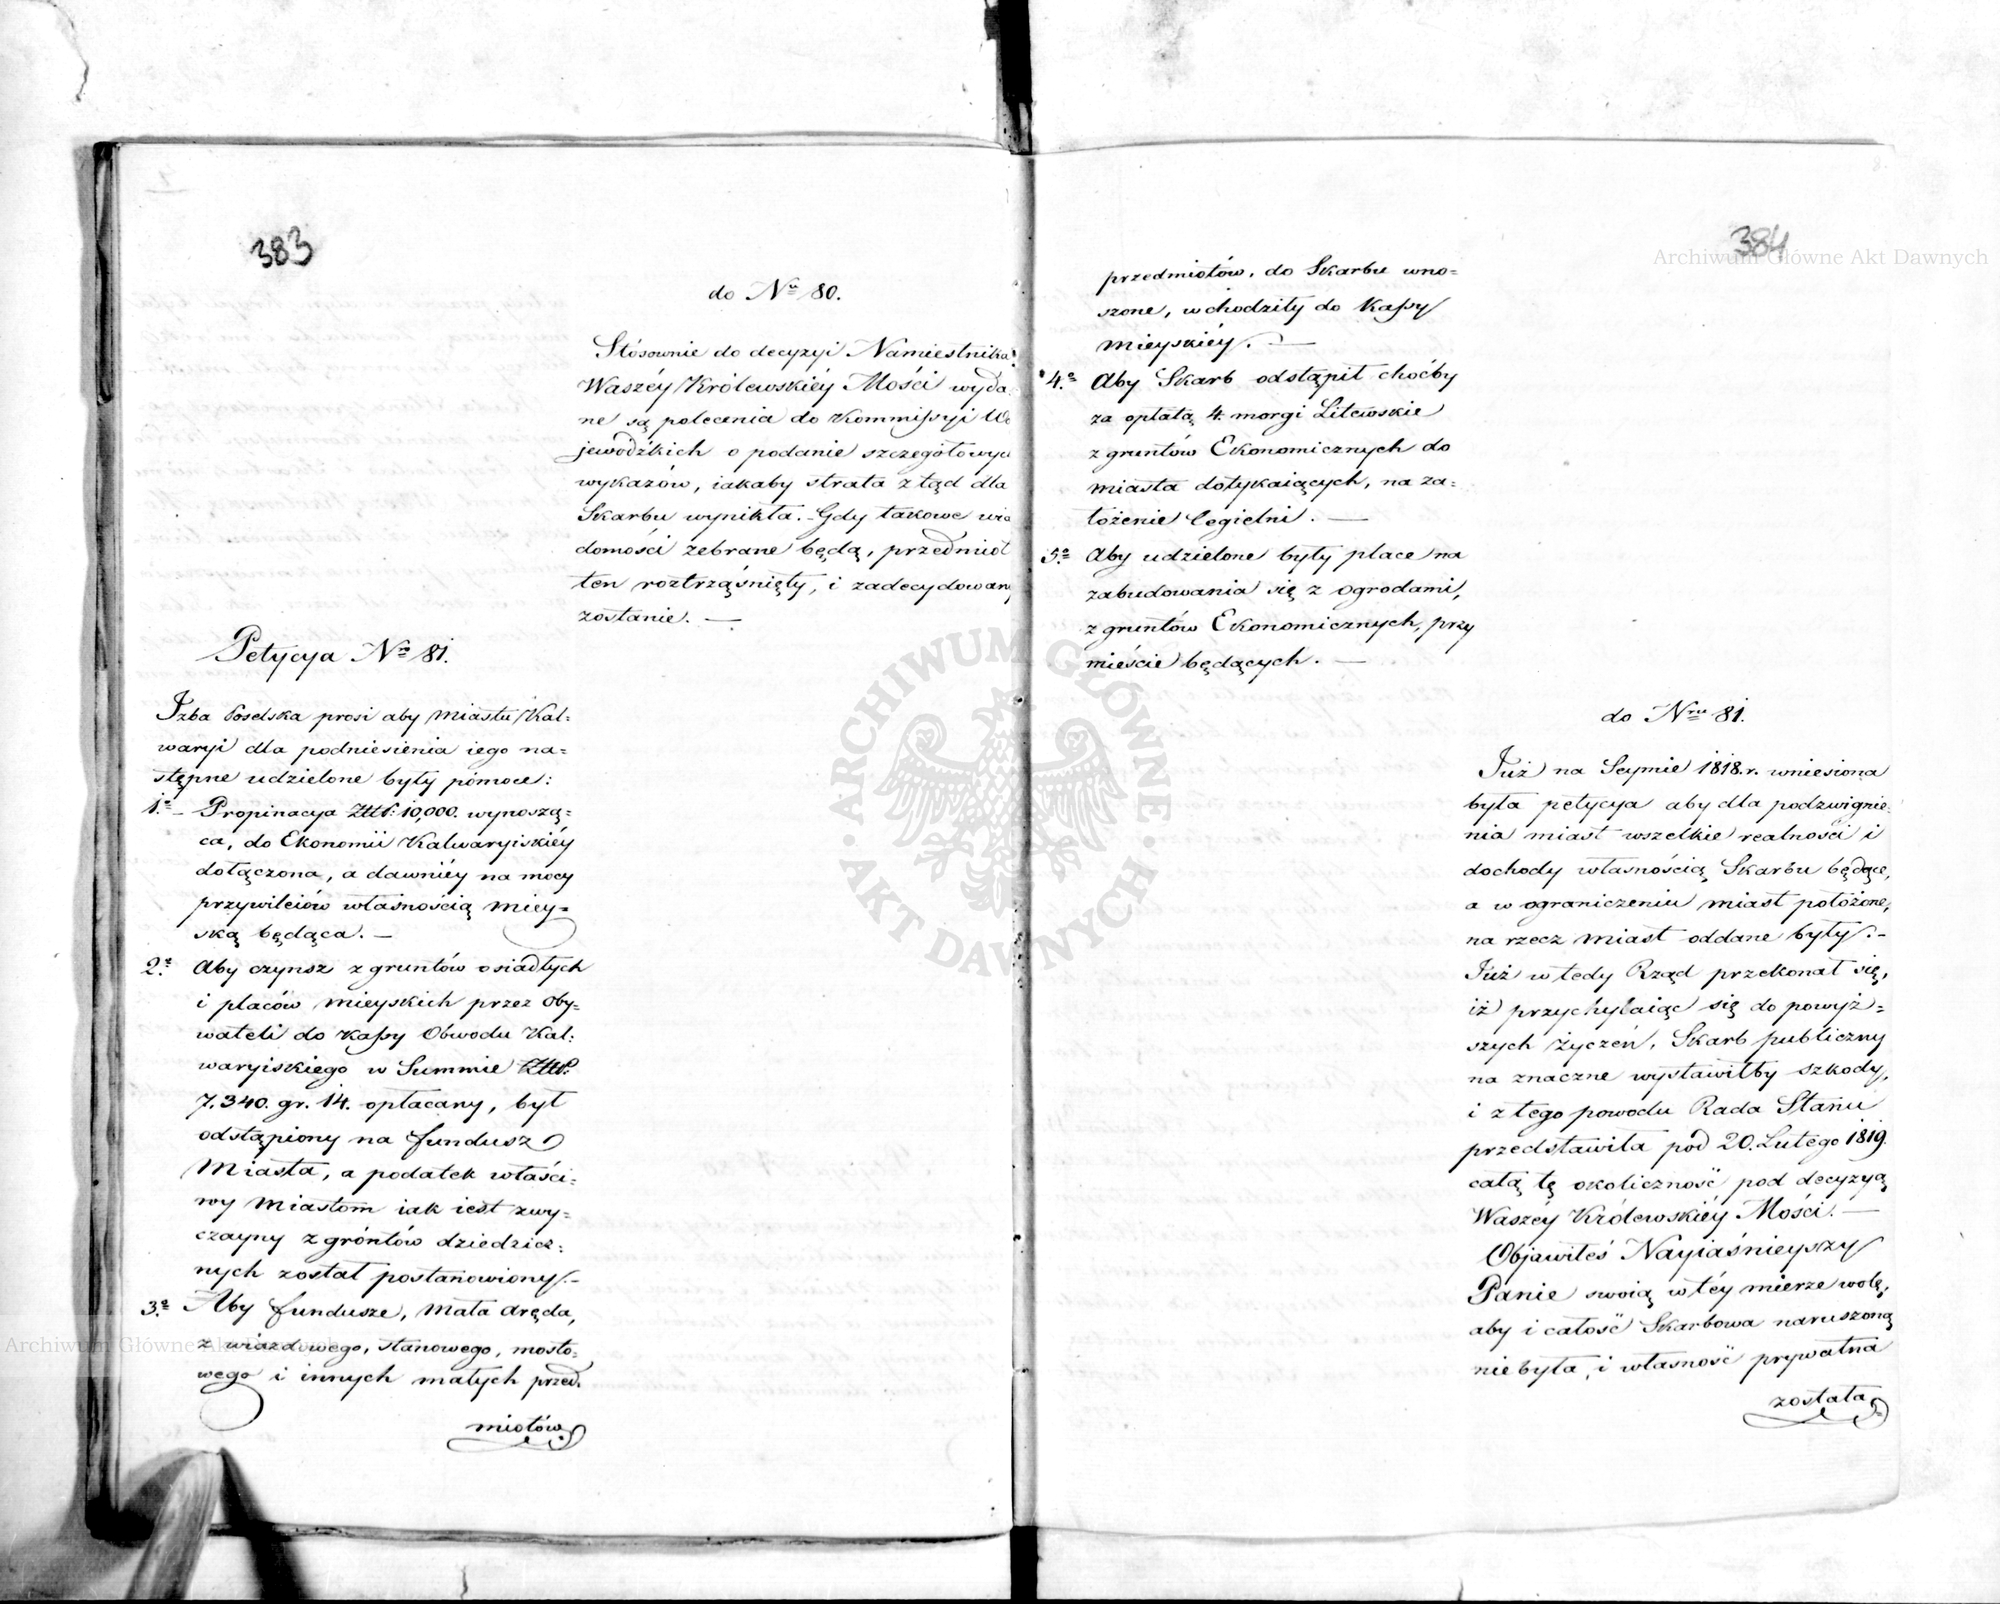 383
do Nu 80.
Stósownie do decyzyi Namiestnika
Waszéy Królewskiéy Mości wyda
ne są polecenia do Kommissyi Wo
jewodzkich o podanie szczegółowyc
wykazów, iakaby strata ztąd dla
Skarbu wynikła. Gdy takowe wia
domości zebrane będą, przedmiot
ten roztrząśnięty, i zadecydowany
zostanie. —
Petycya No 81.
Izba Poselska prosi aby miastu Kal=
waryi dla podniesienia iego na=
stępne udzielone były pomoce:
1o — Propinacya Złł: 10,000. wynoszą=
ca, do Ekonomii Kalwaryiskiéy
dołączona, a dawniéy na mocy
przywileiów własnością miey=
ską będąca. —
2o Aby czynsz z gruntów osiadłych
i placów mieyskich przez Oby=
wateli do Kassy Obwodu Kal=
waryiskiego w Summie Złł.
7,340. gr. 14. opłacany, był
odstąpiony na fundusz
Miasta, a podatek właści=
wy Miastom iak iest zwy=
czayny z gróntów dziedzicz=
nych został postanowiony. —
3o Aby fundusze, mała aręda,
z wiazdowego, stanowego, mosto=
wego i innych małych przed.
miotów
384
przedmiotów, do Skarbu wno=
szone, wchodziły do Kassy
mieyskiéy. —
4o Aby Skarb odstąpił choćby
za opłatą 4. morgi Litewskie
z gruntów Ekonomicznych do
miasta dotykaiących, na za=
łożenie Cegielni. —
5o Aby udzielone były place na
zabudowania się z ogrodami,
z gruntów Ekonomicznych, przy
mieście będących. —
do Nru 81.
Już na Seymie 1818. r. wniesiona
była petycya aby dla podzwignie=
nia miast wszelkie realności i
dochody własnością Skarbu będące,
a w ograniczeniu miast położone,
na rzecz miast oddane były. —
Już wtedy Rząd przekonał się,
iż przychylaiąc się do powyż=
szych życzeń, Skarb publiczny
na znaczne wystawiłby szkody,
i z tego powodu Rada Stanu
przedstawiła pod 20. Lutego 1819.
całą tę okoliczność pod decyzyą
Waszéy Królewskiéy Mości. —
Objawiłeś Nayiaśnieyszy
Panie swoią w téy mierze wolę,
aby i całość Skarbowa naruszoną
niebyła, i własność prywatna
została
Archiwum Główne Akt Dawnych
Archiwum Główne Akt Dawnych
ARCHIWUM GŁÓWNE AKT DAWNYCH